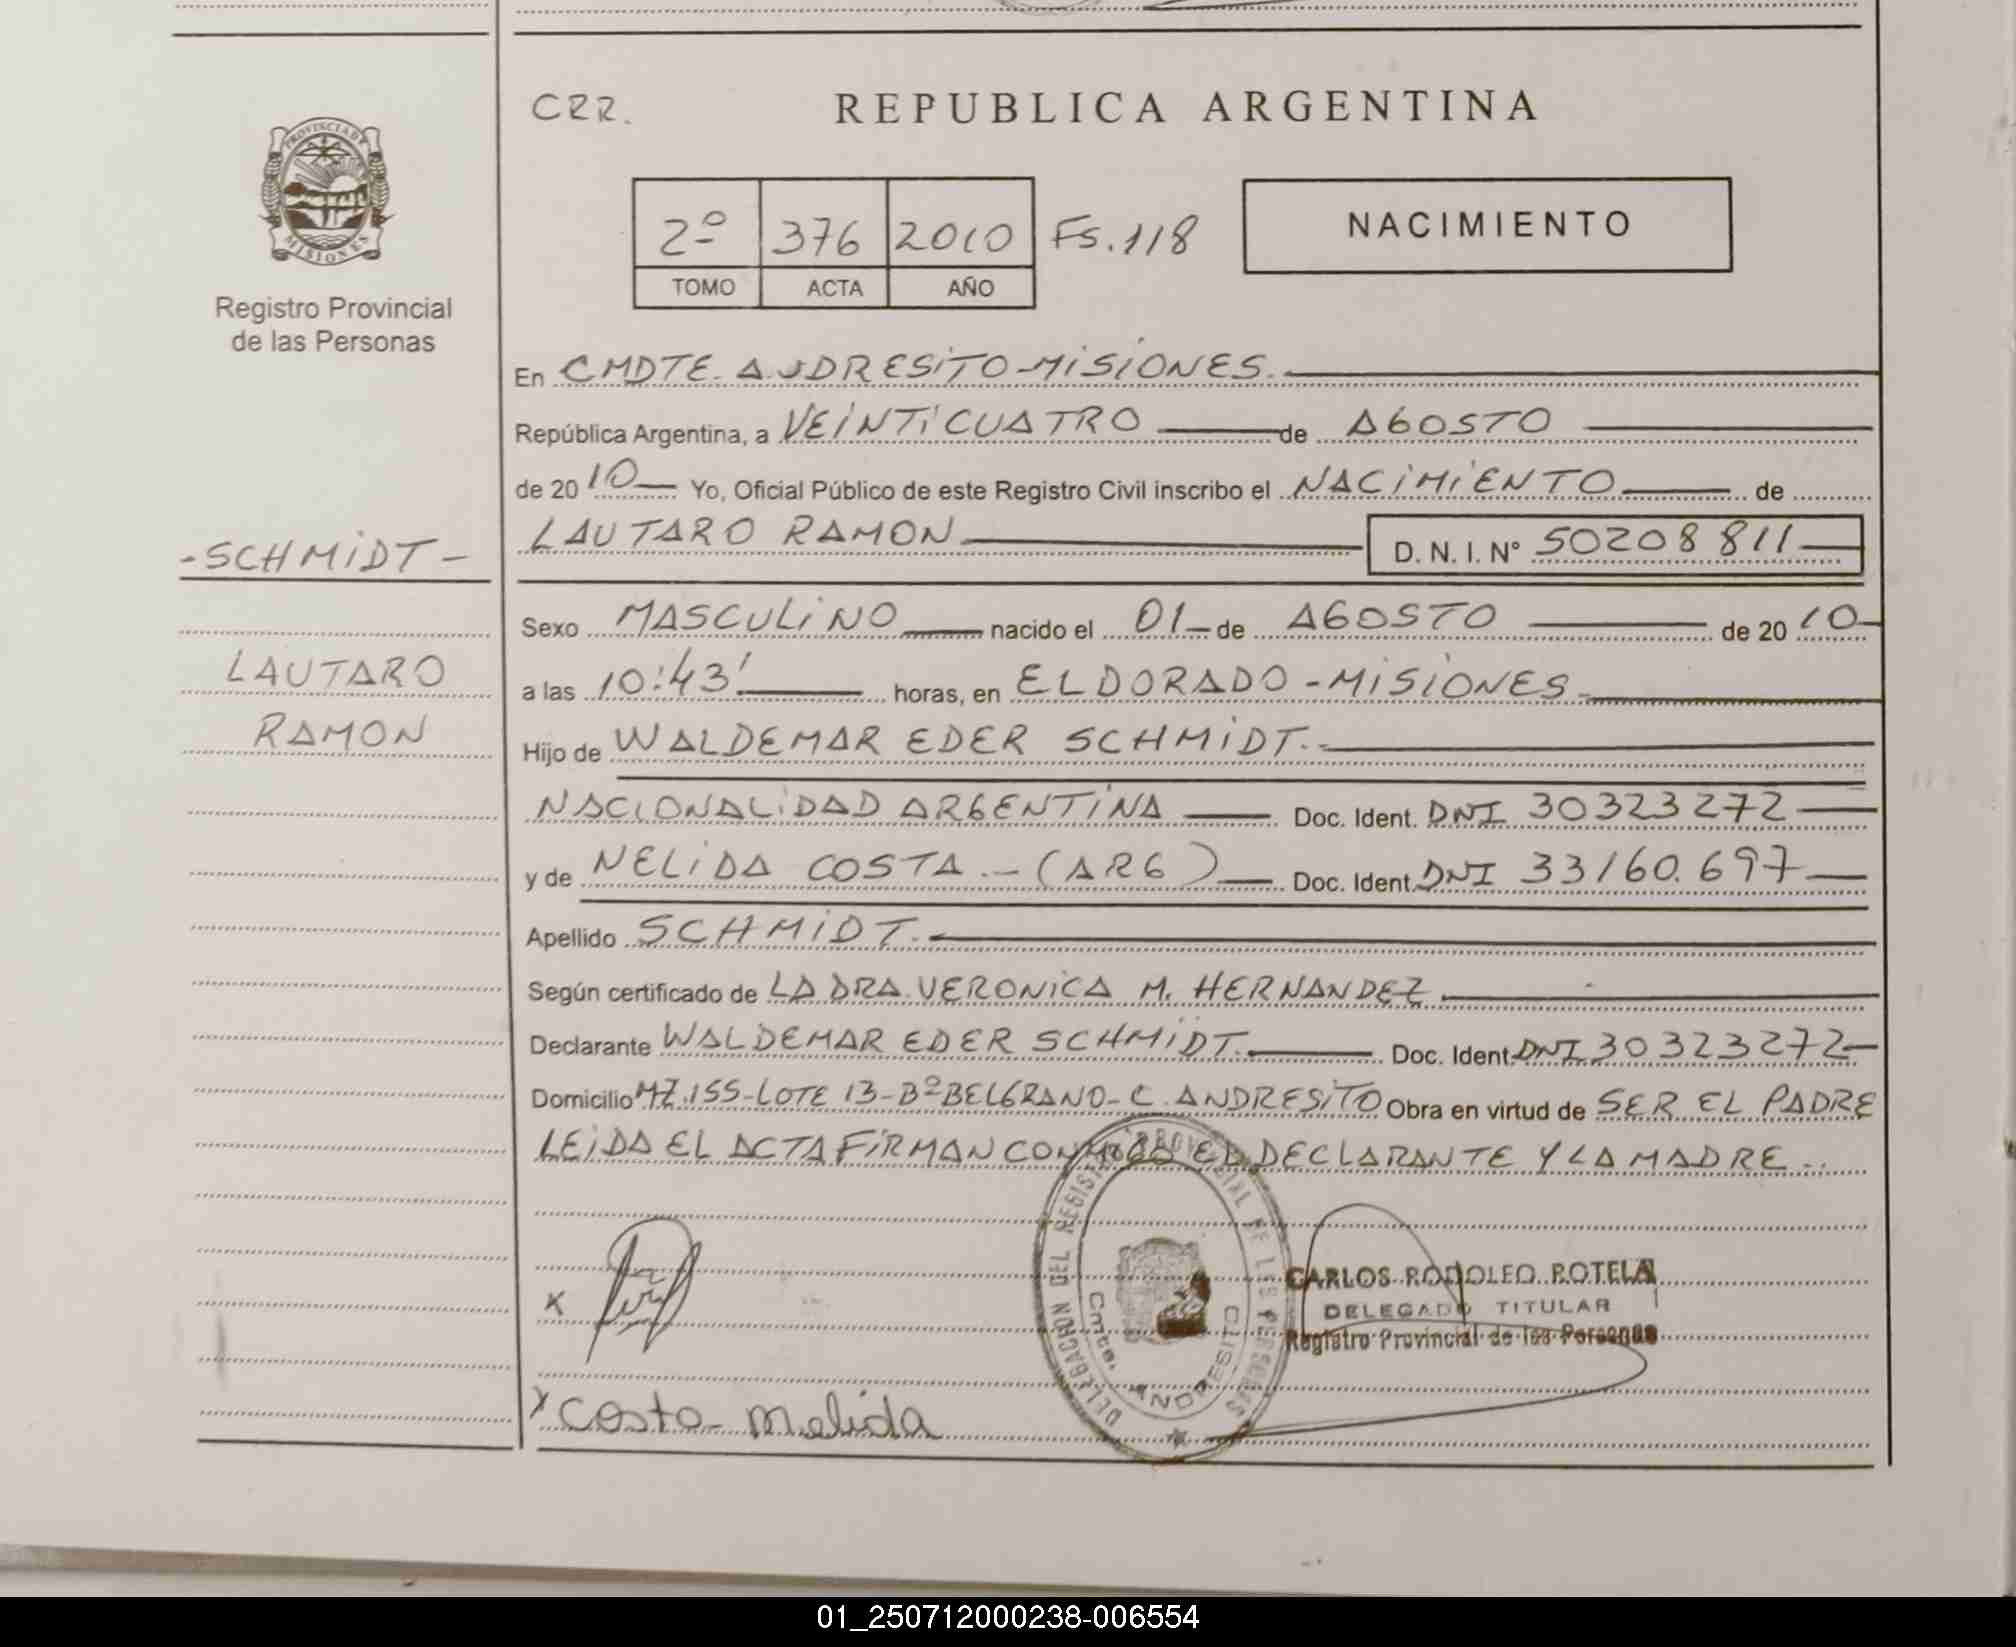 CRR.
REPUBLICA ARGENTINA
PROVINCIA DE MISIONES
Registro Provincial
de las Personas
2º 376 2010 Fs.118
TOMO ACTA AÑO
NACIMIENTO
En CMDTE. ANDRESITO-MISIONES.
República Argentina, a VEINTICUATRO de AGOSTO
de 2010 Yo, Oficial Público de este Registro Civil inscribo el NACIMIENTO de
LAUTARO RAMON D. N. I. Nº 50208811
-SCHMIDT-
LAUTARO
RAMON
Sexo MASCULINO nacido el 01 de AGOSTO de 2010
a las 10:43' horas, en ELDORADO-MISIONES.
Hijo de WALDEMAR EDER SCHMIDT.
NACIONALIDAD ARGENTINA Doc. Ident. DNI 30323272
y de NELIDA COSTA.-(ARG) Doc. Ident. DNI 33160.697
Apellido SCHMIDT.
Según certificado de LA DRA. VERONICA M. HERNANDEZ
Declarante WALDEMAR EDER SCHMIDT. Doc. Ident. DNI 30323272
Domicilio MZ.155-LOTE 13-BºBELGRANO-C. ANDRESITO Obra en virtud de SER EL PADRE
LEIDA EL ACTA FIRMAN CONMIGO EL DECLARANTE Y LA MADRE..
DELEGACION DEL REGISTRO PROVINCIAL DE LAS PERSONAS
Cmte. ANDRESITO
CARLOS RODOLFO ROTELA
DELEGADO TITULAR
Registro Provincial de las Personas
x
x Costa Nelida
01_250712000238-006554